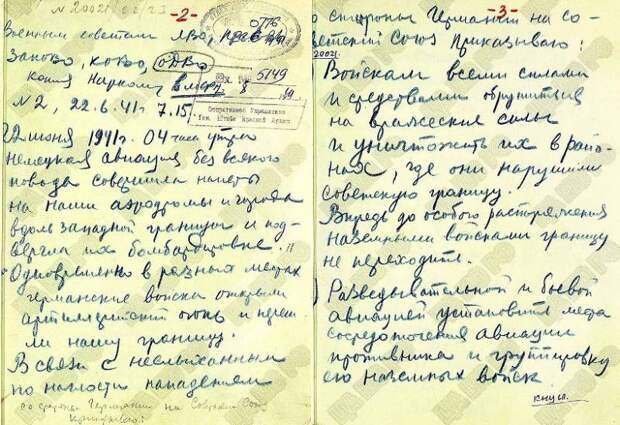 N 20021 02/23 -2-
0776
Военным советам ЛВО, ПрибОВО,
ЗапОВО, КОВО, ОДВО
5149
Копия Наркому Вмфл
N 2, 22.6.41г 7.15
Оперативное Управление
Ген. Штаба Красной Армии
22 июня 1941г. 04 часа утра
немецкая авиация без всякого
повода совершила налеты
на наши аэродромы и города
вдоль западной границы и под-
вергла их бомбардировке.
Одновременно в разных местах
германские войска открыли
артиллерийский огонь и переш-
ли нашу границу.
В связи с неслыханным
по наглости нападением
со стороны Германии на Советский Союз
приказываю:
-3-
со стороны Германии на Со-
ветский Союз Приказываю:
20021.
Войскам всеми силами
и средствами обрушиться
на вражеские силы
и уничтожить их в райо-
нах, где они нарушили
советскую границу.
Впредь до особого распоряжения
наземными войсками границу
не переходить.
Разведывательной и боевой
авиацией установить места
сосредоточения авиации
противника и группировку
его наземных войск